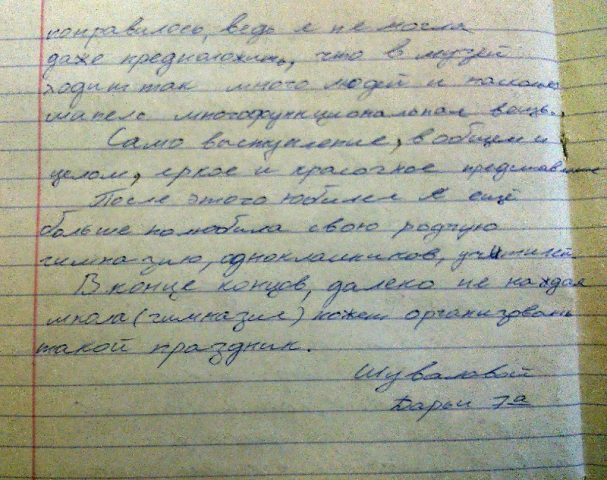 понравилось, ведь я не могла
даже предположить, что в музей
ходит так много людей и насколько
шинель многофункциональная вещь.
Само выступление, в общем и
целом, яркое и красочное представление
После этого юбилея я ещё
больше полюбила свою родную
гимназию, одноклашников, учителей
В конце концов, далеко не каждая
школа (гимназия) может организовать
такой праздник.
Шуваловой
Дарьи 7а